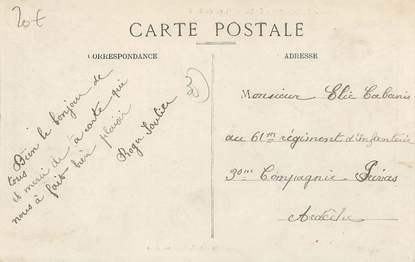 20€
CARTE POSTALE
CORRESPONDANCE
ADRESSE
Bien le bonjour de
tous
et merci de ta carte qui
nous à fait bien plaisir
Roger Soulier
Monsieur Elie Cabanis
au 61me régiment d'Infanterie
30me Compagnie Privas
Ardèche